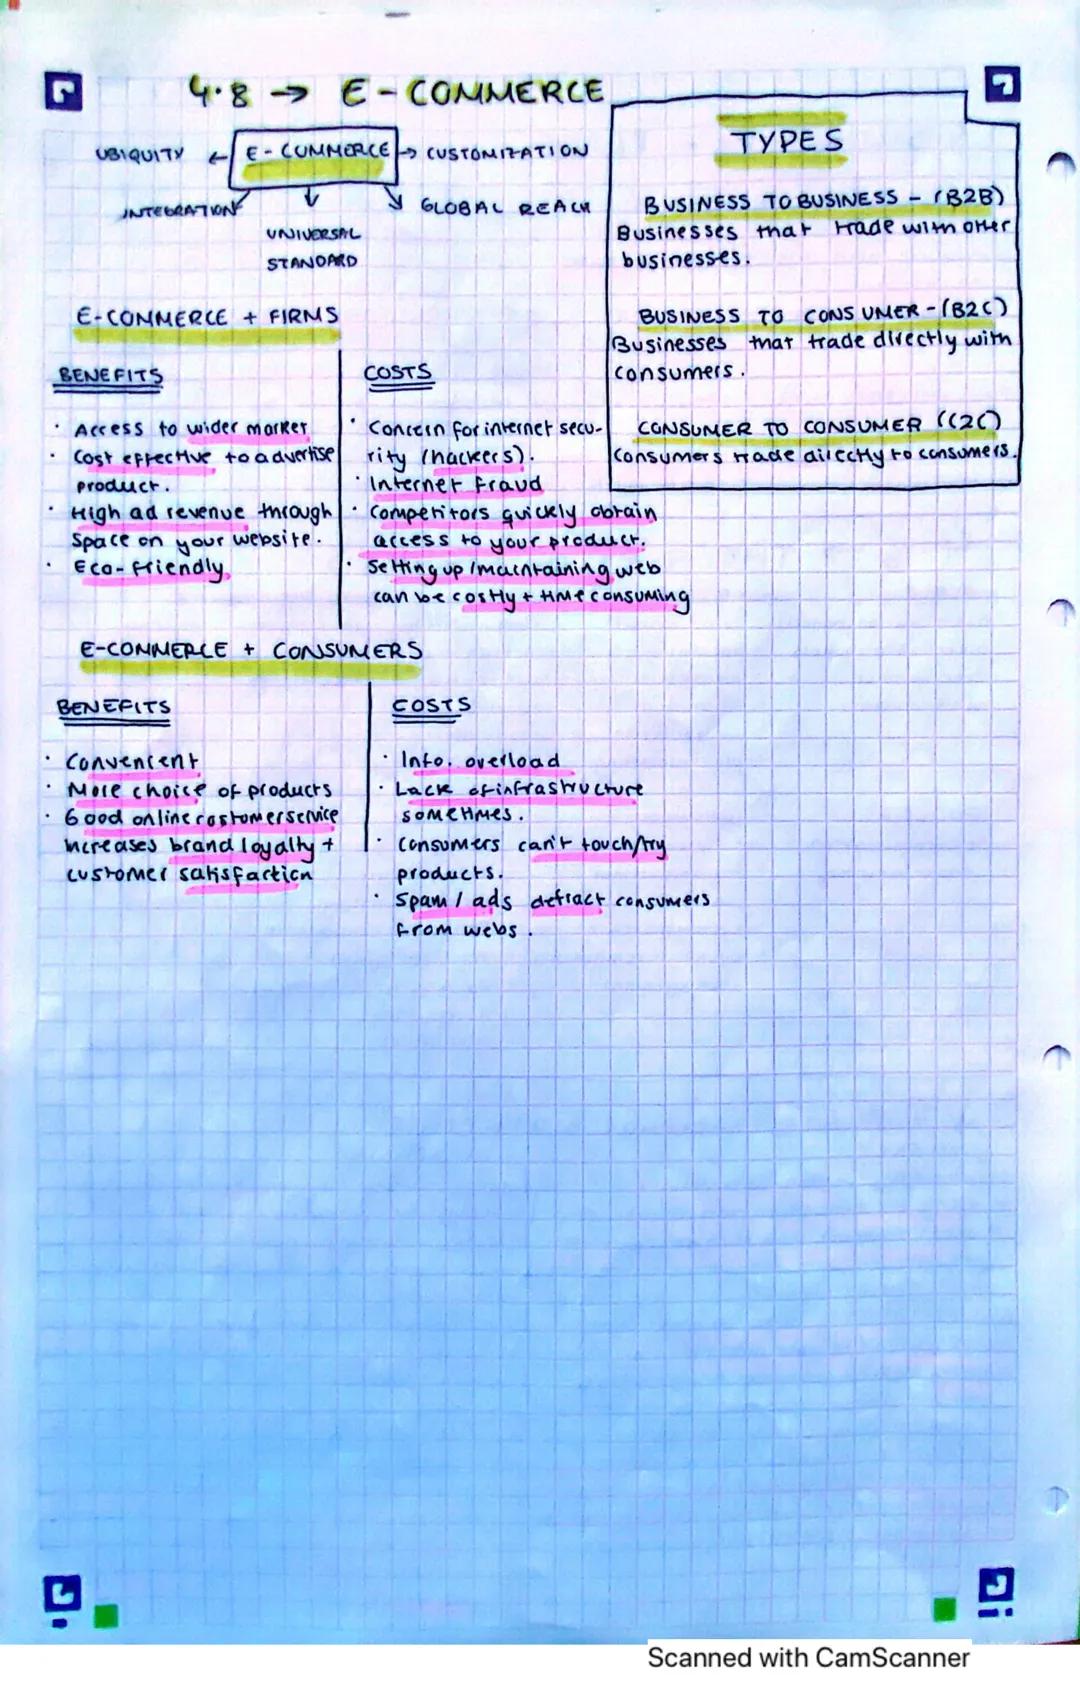 4.8 → E-COMMERCE
UBIQUITY ← E-COMMERCE → CUSTOMIZATION
INTEGRATION
GLOBAL REACH
UNIVERSAL
STANDARD
TYPES
BUSINESS TO BUSINESS - (B2B)
Businesses that trade with other
businesses.
BUSINESS TO CONSUMER - (B2C)
Businesses that trade directly with
consumers.
CONSUMER TO CONSUMER (C2C)
Consumers trade directly to consumers.
E-COMMERCE + FIRMS
BENEFITS
· Access to wider market
· Cost effective to advertise
product.
· High ad revenue through
space on your website.
· Eco-friendly
COSTS
· Concern for internet secu-
rity (hackers).
· Internet Fraud
· Competitors quickly obtain
access to your product.
· Setting up/maintaining web
can be costly + time consuming
E-COMMERCE + CONSUMERS
BENEFITS
· Convenient
· More choice of products
· Good online costomer service
increases brand loyalty +
customer satisfaction
COSTS
· Info. overload
· Lack of infrastructure
sometimes.
· Consumers can't touch/try
products.
· Spam / ads detract consumers
from webs.
Scanned with CamScanner